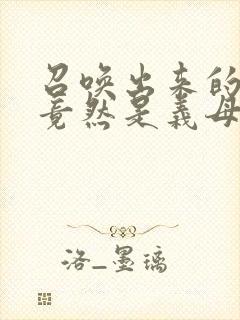 召唤出来的
竟然是义母
洛_墨璃